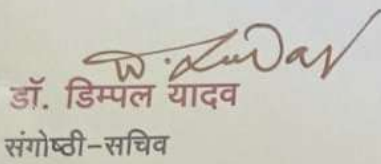 डॉ. डिम्पल यादव
संगोष्ठी-सचिव